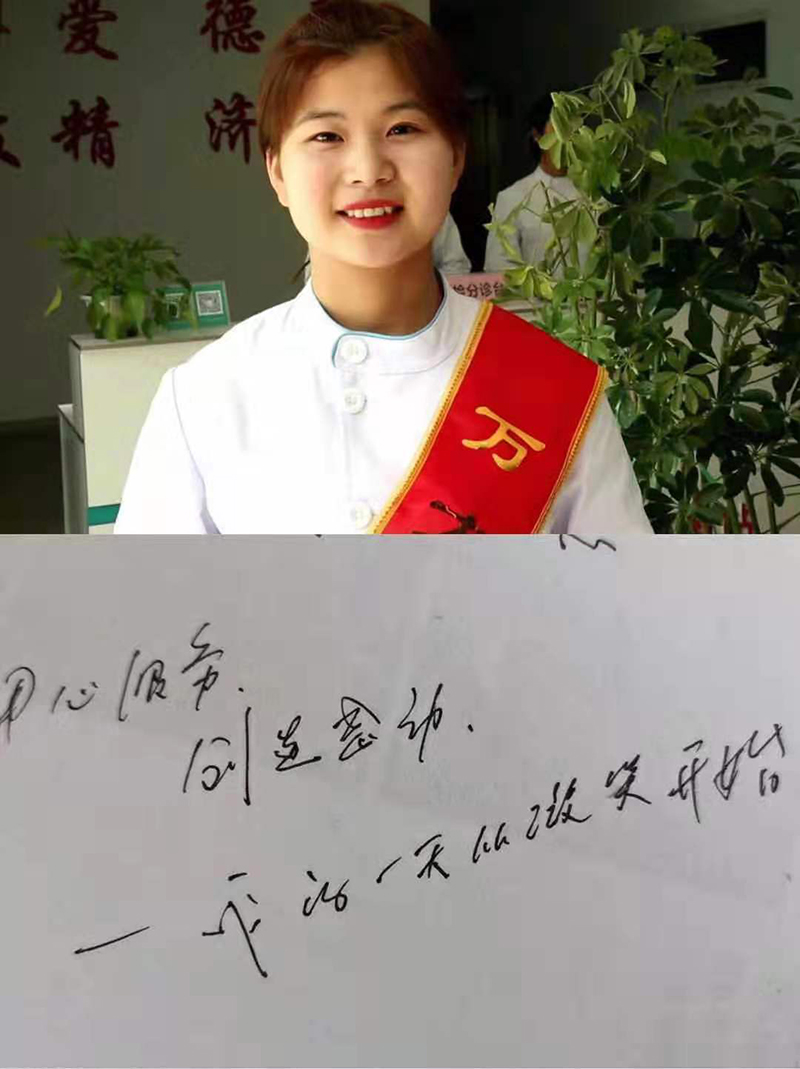 爱 德
精 济
分诊台
万
用心服务.
创造感动.
—我的一天从微笑开始